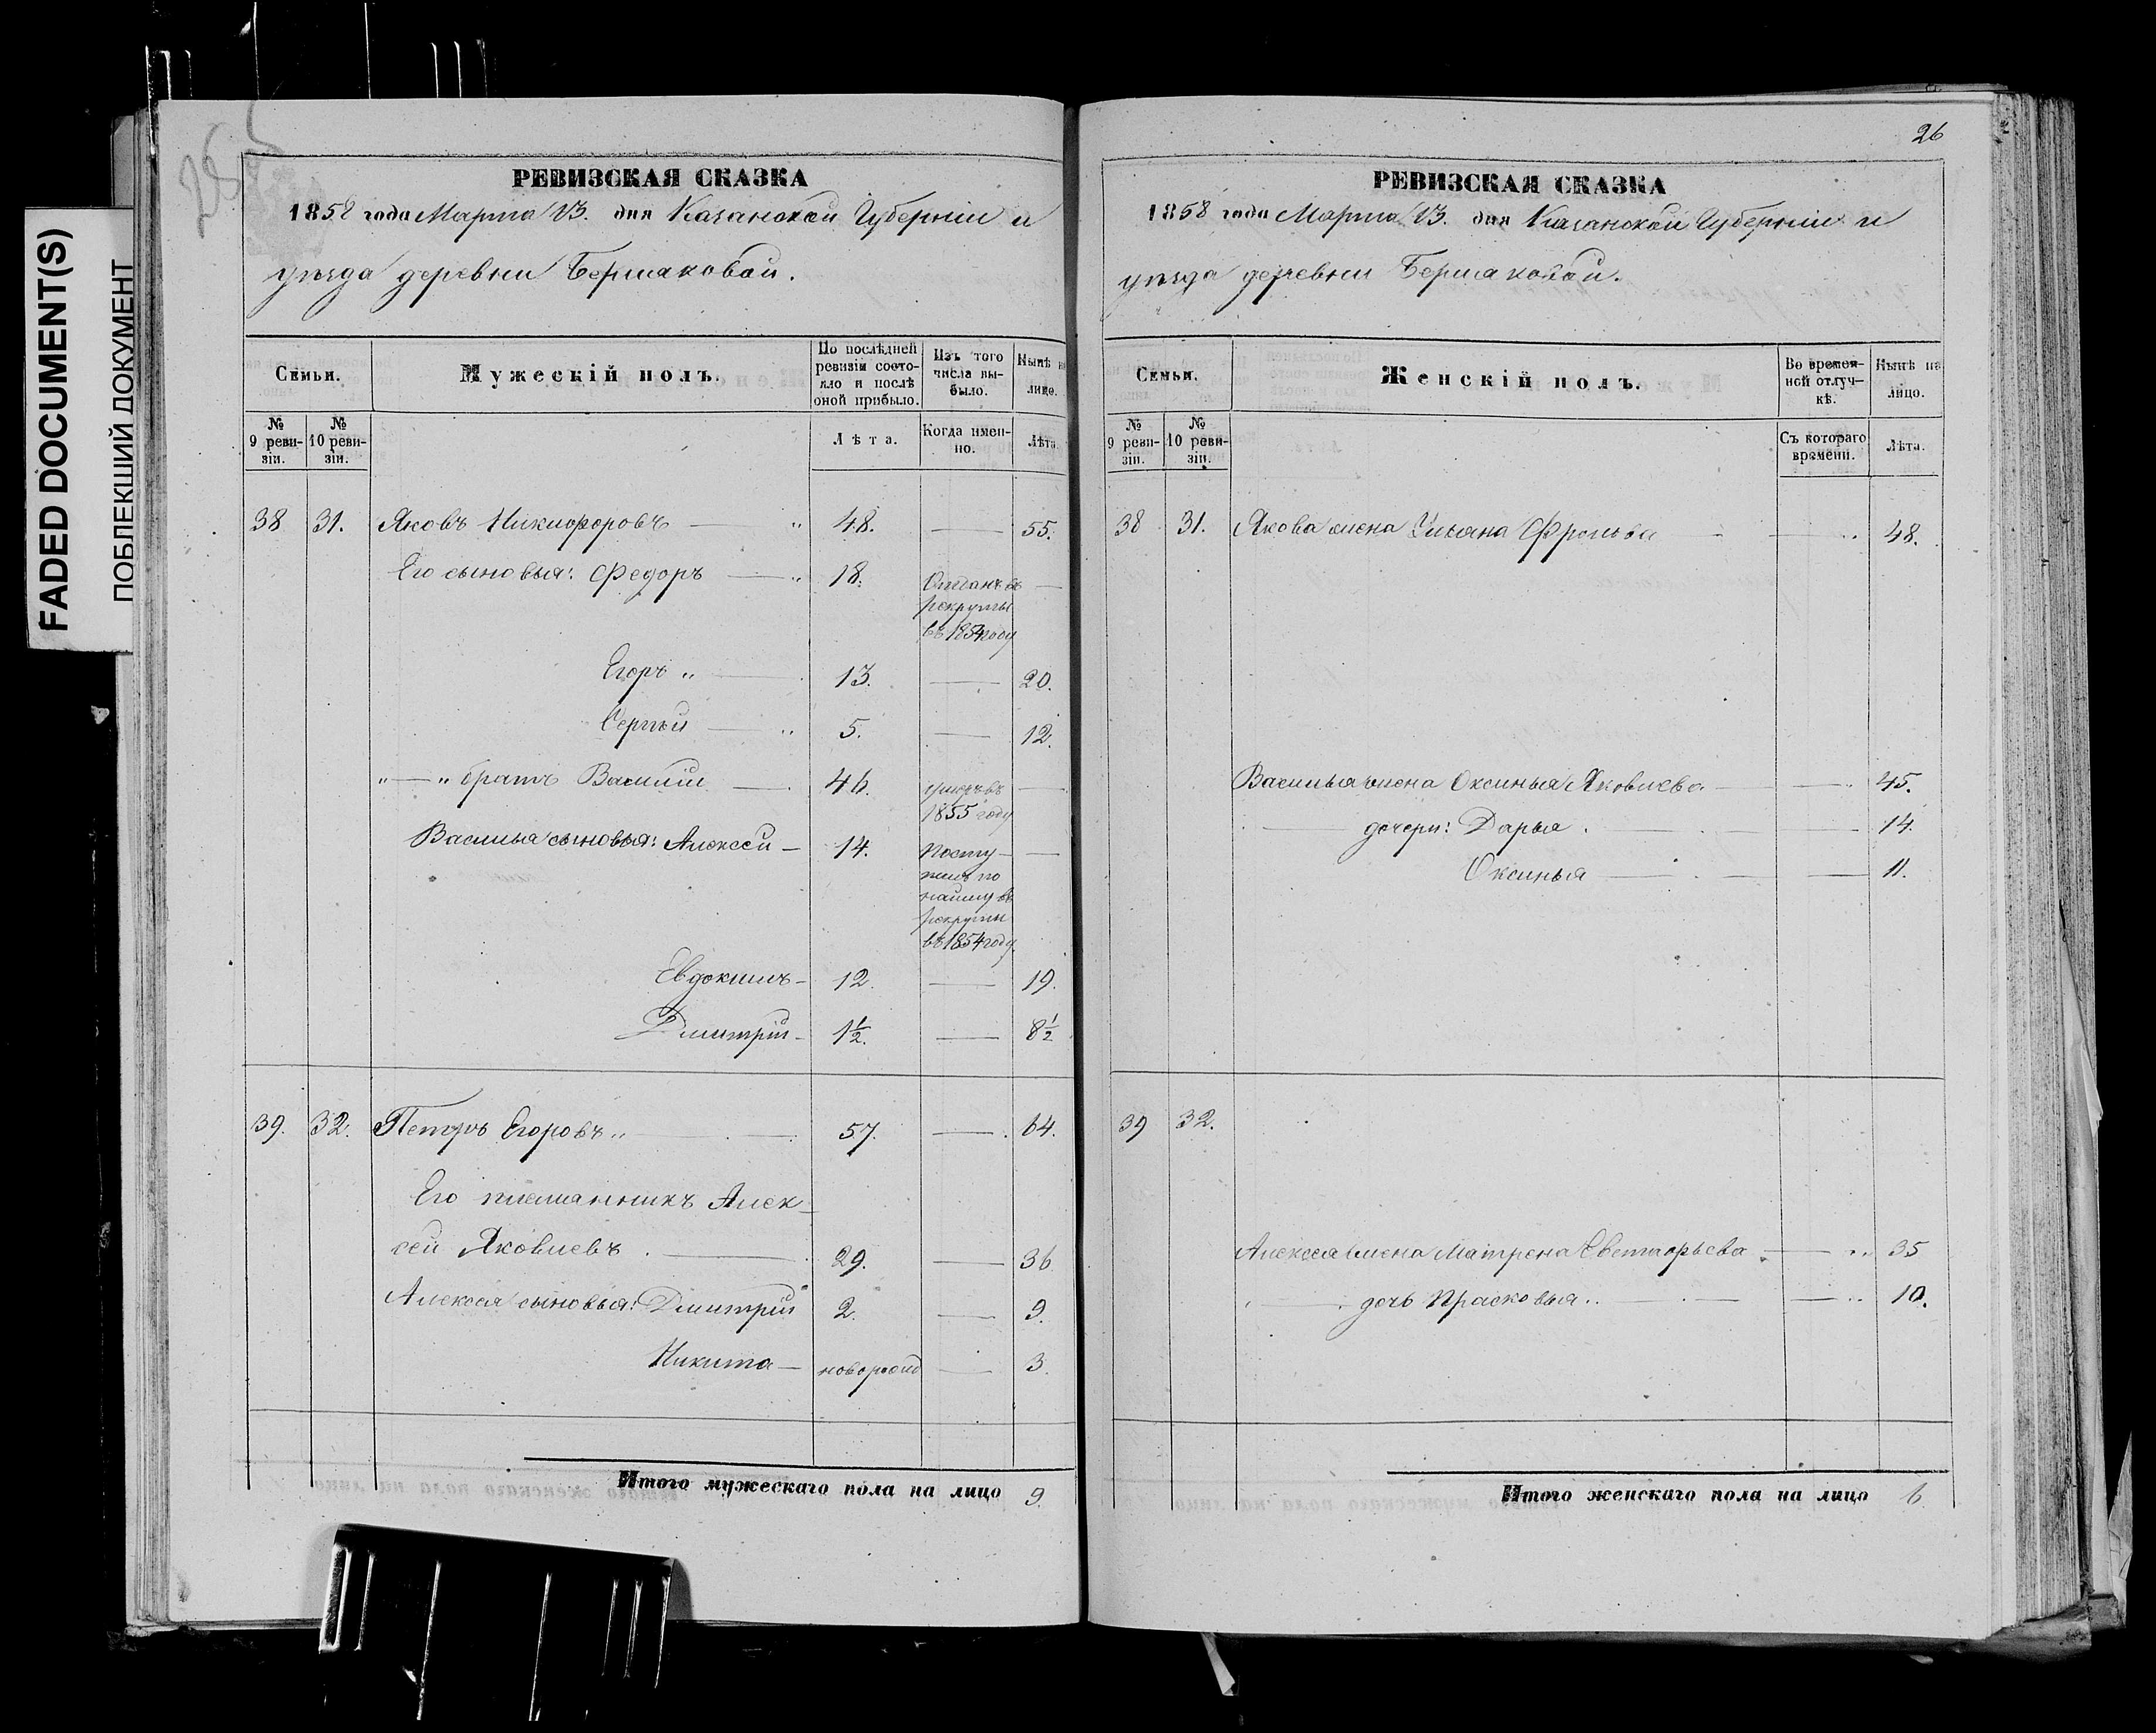 FADED DOCUMENT(S)
ПОБЛЕКШИЙ ДОКУМЕНТ
РЕВИЗСКАЯ СКАЗКА
1858 года Марта 13. дня Казанской Губерніи и
уѣзда деревни Бермаковой.
Семьи.
Мужескій полъ.
По послѣдней
ревизіи состо-
яло и послѣ
оной прибыло.
Изъ того
числа вы-
было.
Нынѣ на
лице.
№
9 реви-
зіи.
№
10 реви-
зіи.
Лѣта.
Когда имен-
но.
Лѣта
38 31. Яковъ Никифоровъ — „ 48. — 55.
Его сыновья: Федоръ — „ 18. Отданъ въ —
рекруты
въ 1854 году
Егоръ „ — 13. — 20.
Сергѣй — „ 5. — 12.
„—„ братъ Василій — 46. умеръ въ —
1855 году
Василья сыновья: Алексей — 14. Посту- —
пилъ по
найму въ
рекруты
въ 1854 году.
Евдокимъ — 12. — 19.
Дмитрій — 1½. — 8½
39. 32. Петръ Егоровъ „ — 57. — 64.
Его племянникъ Алек-
сей Яковлевъ . — 29. — 36
Алексея сыновья: Дмитрій 2. — 9.
Никита — новорожд — 3.
Итого мужескаго пола на лицо 9.
26
РЕВИЗСКАЯ СКАЗКА
1858 года Марта 13. дня Казанской Губерніи и
уѣзда деревни Бермаковой.
Семьи.
Женскій полъ.
Во времен-
ной отлуч-
кѣ.
Нынѣ на
лицо.
№
9 реви-
зіи.
№
10 реви-
зіи.
Съ котораго
времени.
Лѣта.
38 31. Якова жена Ульяна Фролова — — „ 48.
Василья жена Оксинья Яковлева — — 45.
— дочери: Дарья . — — 14.
Оксинья — — 11.
39 32.
Алексея жена Матрена — „ 35
— дочь Прасковья .. — — „ 10.
Итого женскаго пола на лицо 6.